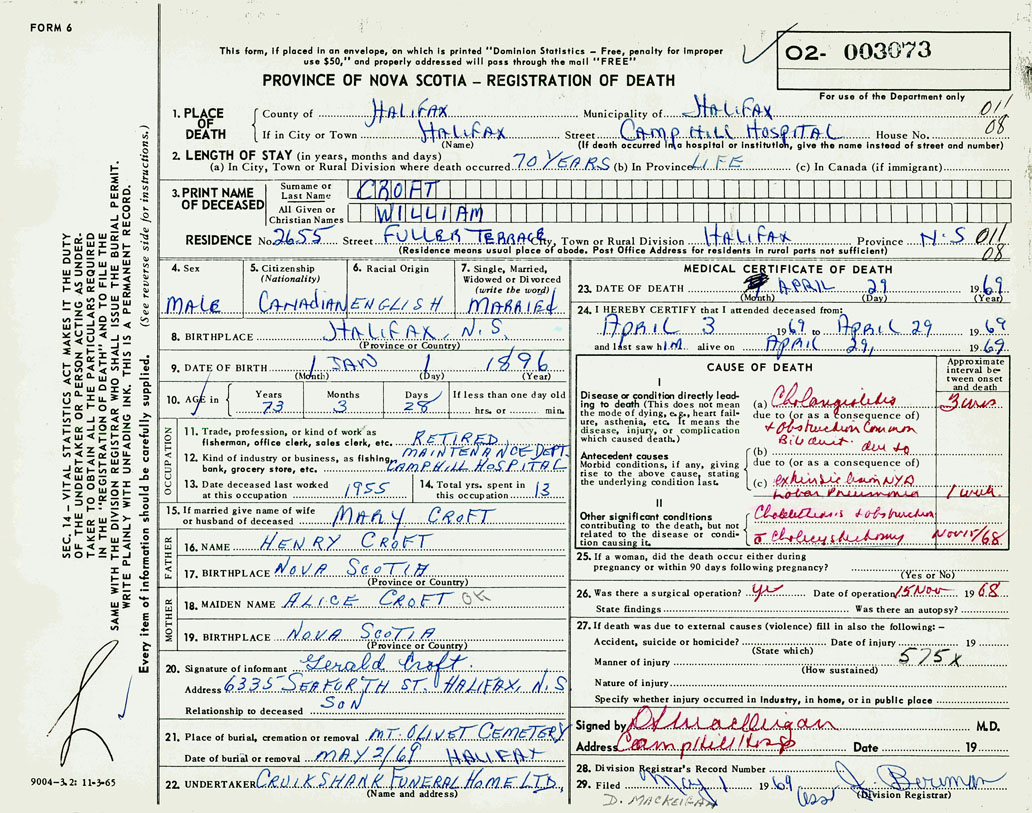 FORM 6
This form, if placed in an envelope, on which is printed "Dominion Statistics – Free, penalty for improper
use $50," and properly addressed will pass through the mail "FREE"
O2- 003073
For use of the Department only
PROVINCE OF NOVA SCOTIA – REGISTRATION OF DEATH
1. PLACE OF DEATH
County of HALIFAX Municipality of HALIFAX 011
If in City or Town HALIFAX Street CAMP HILL HOSPITAL House No. 08
(Name) (If death occurred in a hospital or institution, give the name instead of street and number)
2. LENGTH OF STAY (in years, months and days)
(a) In City, Town or Rural Division where death occurred 70 YEARS (b) In Province LIFE (c) In Canada (if immigrant)
3. PRINT NAME OF DECEASED
Surname or Last Name CROFT
All Given or Christian Names WILLIAM
RESIDENCE No. 2655 Street FULLER TERRACE City, Town or Rural Division HALIFAX Province N.S 011
(Residence means usual place of abode. Post Office Address for residents in rural parts not sufficient) 08
4. Sex MALE
5. Citizenship (Nationality) CANADIAN
6. Racial Origin ENGLISH
7. Single, Married, Widowed or Divorced (write the word) MARRIED
8. BIRTHPLACE HALIFAX, N.S.
(Province or Country)
9. DATE OF BIRTH JAN 1 1896
(Month) (Day) (Year)
10. AGE in Years 73 Months 3 Days 28 If less than one day old hrs. or min.
OCCUPATION
11. Trade, profession, or kind of work as
fisherman, office clerk, sales clerk, etc. RETIRED
12. Kind of industry or business, as fishing, MAINTENANCE DEPT.
bank, grocery store, etc. CAMPHILL HOSPITAL
13. Date deceased last worked at this occupation 1955
14. Total yrs. spent in this occupation 13
15. If married give name of wife or husband of deceased MARY CROFT
FATHER
16. NAME HENRY CROFT
17. BIRTHPLACE NOVA SCOTIA
(Province or Country)
MOTHER
18. MAIDEN NAME ALICE CROFT OK
19. BIRTHPLACE NOVA SCOTIA
(Province or Country)
20. Signature of informant Gerald Croft
Address 6335 SEAFORTH ST. HALIFAX, N.S
Relationship to deceased SON
21. Place of burial, cremation or removal MT. OLIVET CEMETERY
Date of burial or removal MAY 2/69 HALIFAX
22. UNDERTAKER CRUIKSHANK FUNERAL HOME LTD.,
(Name and address)
MEDICAL CERTIFICATE OF DEATH
23. DATE OF DEATH APRIL 29 1969
(Month) (Day) (Year)
24. I HEREBY CERTIFY that I attended deceased from:
APRIL 3 1969 to APRIL 29 1969
and last saw him alive on APRIL 29, 1969
CAUSE OF DEATH
Approximate interval between onset and death
I
Disease or condition directly leading to death (This does not mean the mode of dying, e.g., heart failure, asthenia, etc. It means the disease, injury, or complication which caused death.)
(a) Cholangiolitis 3 wks
due to (or as a consequence of)
+ obstruction Common
Bile duct due to
Antecedent causes
Morbid conditions, if any, giving rise to the above cause, stating the underlying condition last.
(b)
due to (or as a consequence of)
(c) NYD
Lobar Pneumonia 1 week
II
Other significant conditions
contributing to the death, but not related to the disease or condition causing it.
+ obstruction
Nov 15/68
25. If a woman, did the death occur either during
pregnancy or within 90 days following pregnancy?
(Yes or No)
26. Was there a surgical operation? yes Date of operation 15 Nov 1968
State findings Was there an autopsy?
27. If death was due to external causes (violence) fill in also the following: –
Accident, suicide or homicide? Date of injury 19
(State which)
Manner of injury 575X
(How sustained)
Nature of injury
Specify whether injury occurred in industry, in home, or in public place
Signed by M.D.
Address Camp Hill Hosp Date 19
28. Division Registrar's Record Number
29. Filed May 1 1969 J. Bowman
(Division Registrar)
SEC. 14 – VITAL STATISTICS ACT MAKES IT THE DUTY
OF THE UNDERTAKER OR PERSON ACTING AS UNDERTAKER
TO OBTAIN ALL THE PARTICULARS REQUIRED
IN THE "REGISTRATION OF DEATH" AND TO FILE THE
SAME WITH THE DIVISION REGISTRAR WHO SHALL ISSUE THE BURIAL PERMIT.
WRITE PLAINLY WITH UNFADING INK. THIS IS A PERMANENT RECORD.
Every item of information should be carefully supplied. (See reverse side for instructions.)
9004-3.2: 11-3-65